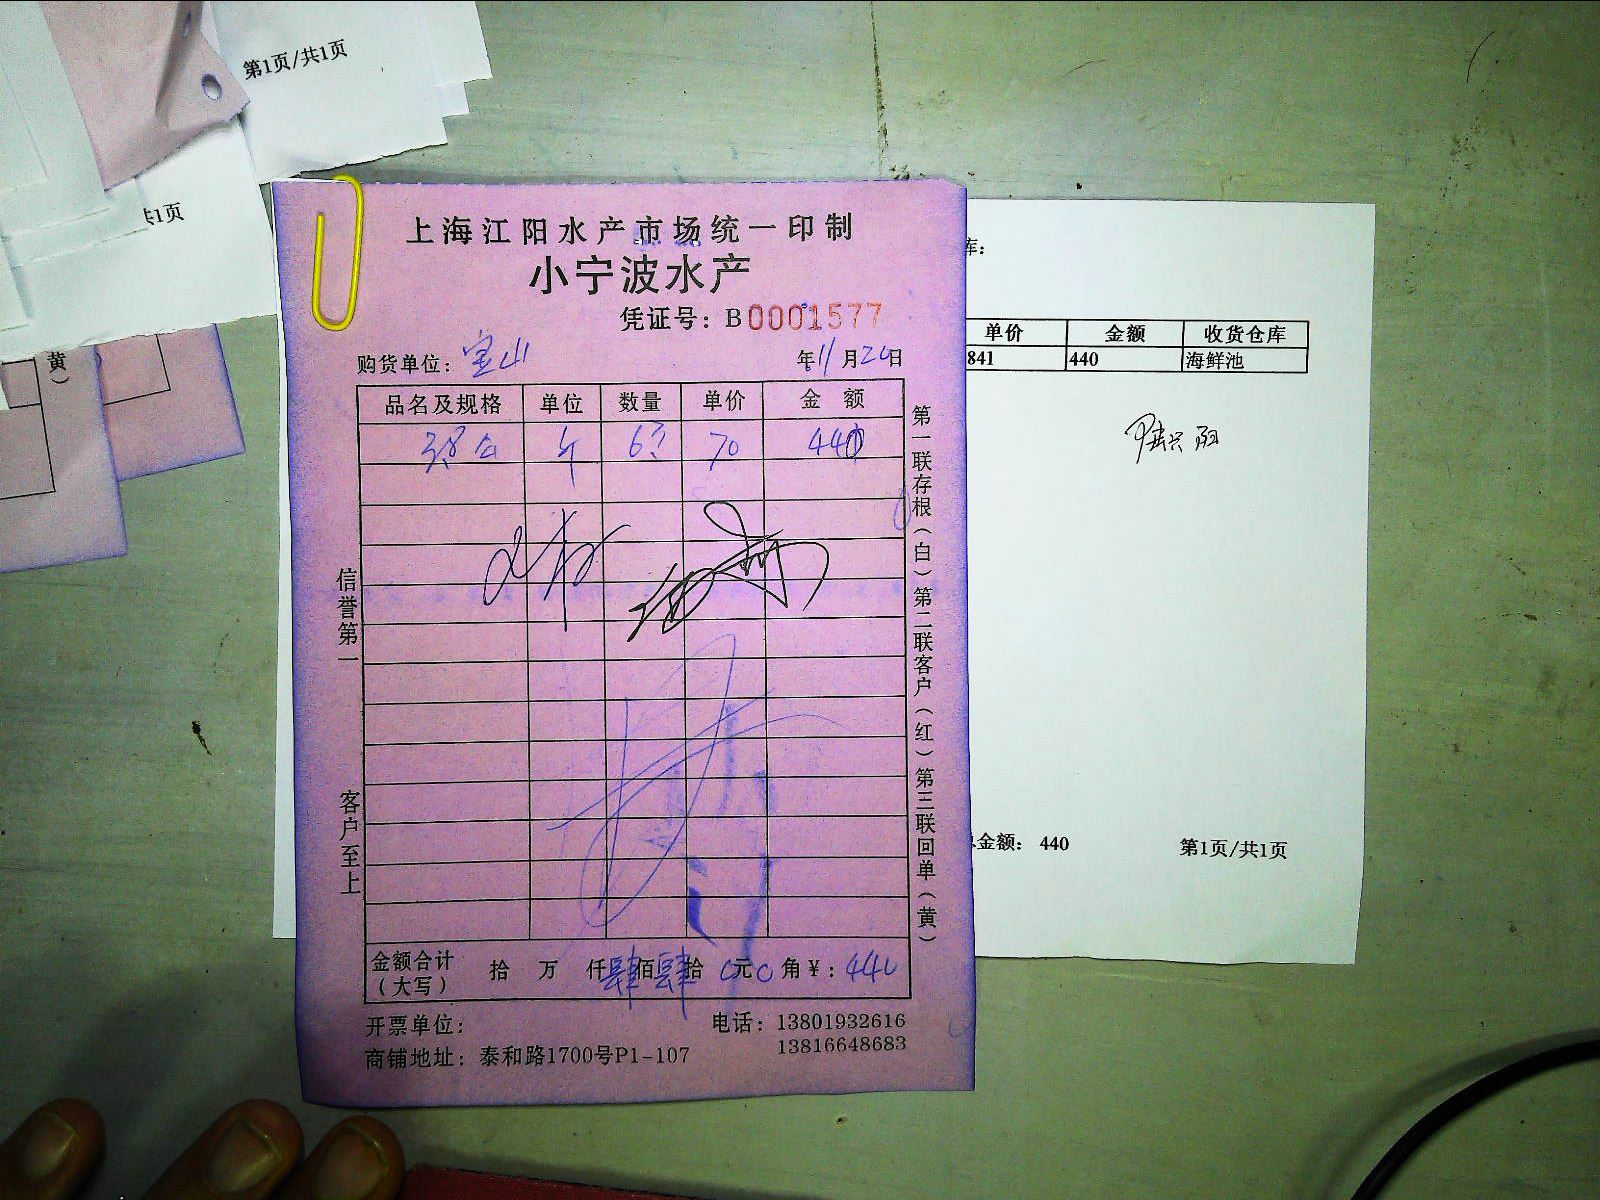 第1页/共1页
共1页
黄）
上海江阳水产市场统一印制
小宁波水产
凭证号：B0001577
购货单位：宝山
年11月20日
品名及规格 单位 数量 单价 金 额
70 440
信誉第一
客户至上
第一联存根（白）第二联客户（红）第三联回单（黄）
金额合计（大写） 拾 万 仟肆佰肆拾0元0角¥：440
开票单位：
电话：13801932616
13816648683
商铺地址：泰和路1700号P1-107
库：
单价 金额 收货仓库
841 440 海鲜池
金额： 440
第1页/共1页